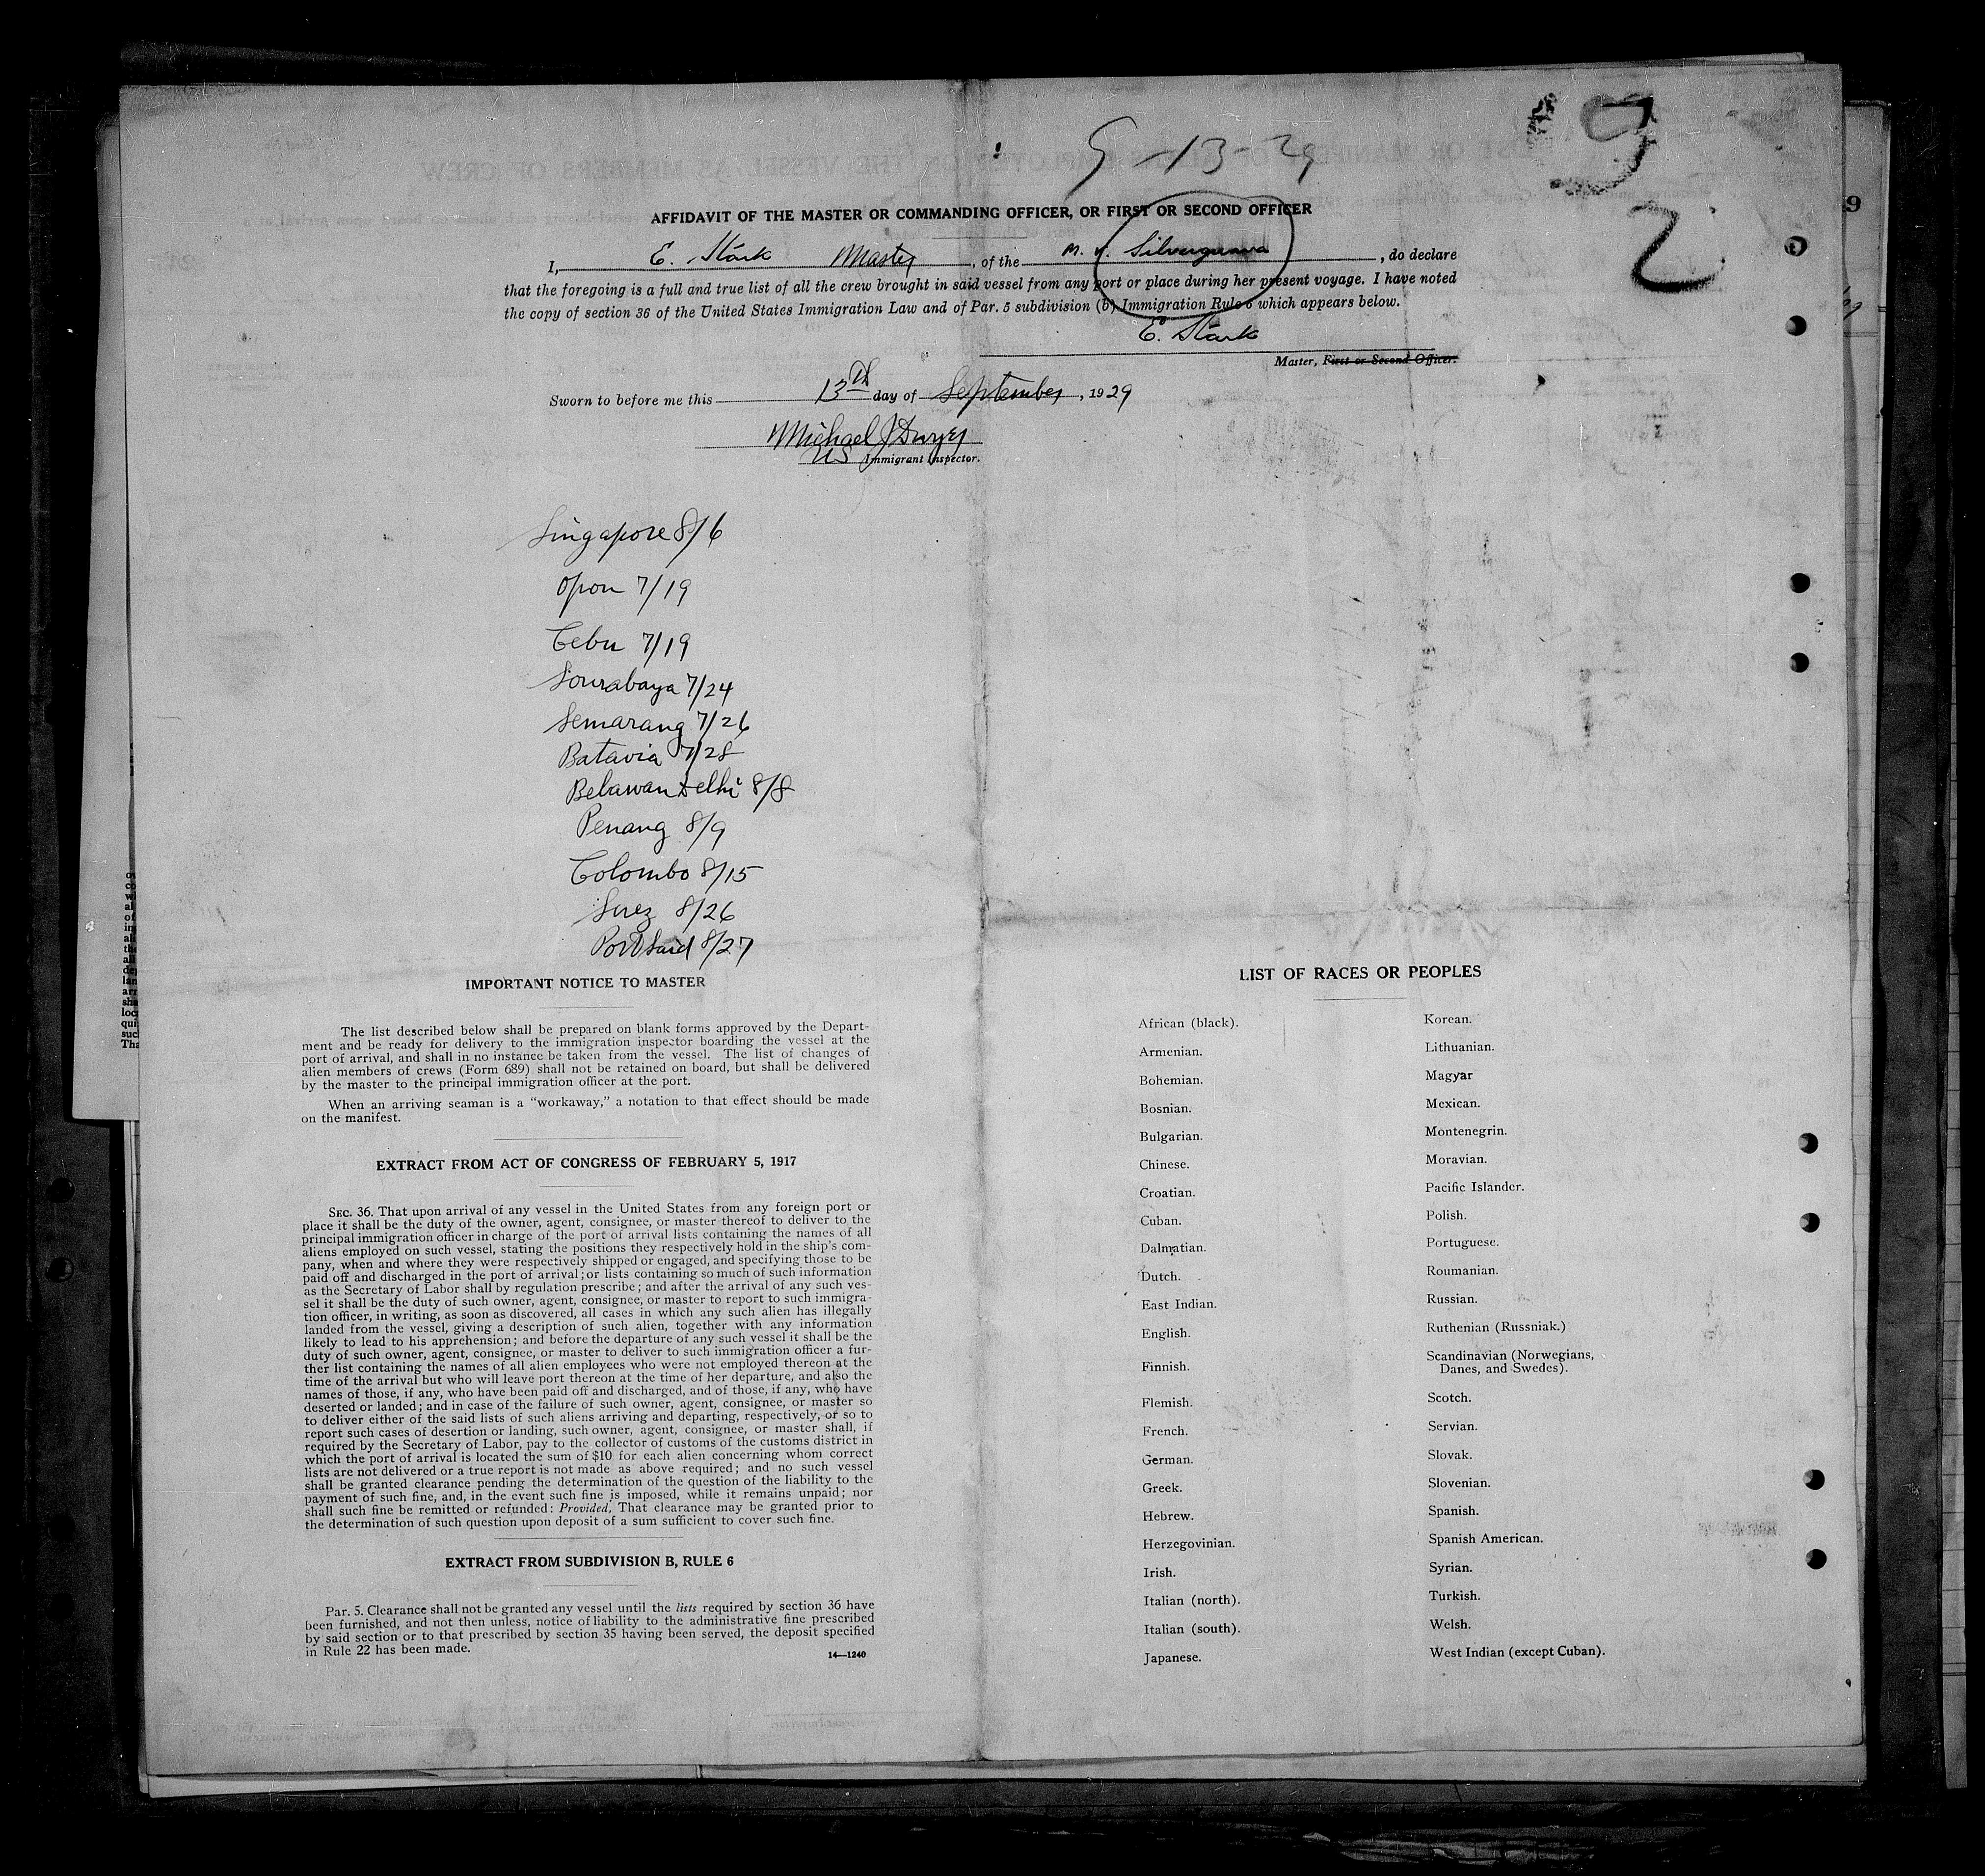 9-13-29
2
AFFIDAVIT OF THE MASTER OR COMMANDING OFFICER, OR FIRST OR SECOND OFFICER
I, E. Stark Master, of the M. V. , do declare
that the foregoing is a full and true list of all the crew brought in said vessel from any port or place during her present voyage. I have noted
the copy of section 36 of the United States Immigration Law and of Par. 5 subdivision (b) Immigration Rule 6 which appears below.
E. Stark
Master, First or Second Officer.
Sworn to before me this 13th day of September, 1929
Michael J Dwyer
US Immigrant Inspector.
Singapore 8/6
Opon 7/19
Cebu 7/19
Sourabaya 7/24
Semarang 7/26
Batavia 7/28
Belawan Delhi 8/8
Penang 8/9
Colombo 8/15
Suez 8/26
Port Said 8/27
IMPORTANT NOTICE TO MASTER
The list described below shall be prepared on blank forms approved by the Depart-
ment and be ready for delivery to the immigration inspector boarding the vessel at the
port of arrival, and shall in no instance be taken from the vessel. The list of changes of
alien members of crews (Form 689) shall not be retained on board, but shall be delivered
by the master to the principal immigration officer at the port.
When an arriving seaman is a “workaway,” a notation to that effect should be made
on the manifest.
EXTRACT FROM ACT OF CONGRESS OF FEBRUARY 5, 1917
SEC. 36. That upon arrival of any vessel in the United States from any foreign port or
place it shall be the duty of the owner, agent, consignee, or master thereof to deliver to the
principal immigration officer in charge of the port of arrival lists containing the names of all
aliens employed on such vessel, stating the positions they respectively hold in the ship's com-
pany, when and where they were respectively shipped or engaged, and specifying those to be
paid off and discharged in the port of arrival; or lists containing so much of such information
as the Secretary of Labor shall by regulation prescribe; and after the arrival of any such ves-
sel it shall be the duty of such owner, agent, consignee, or master to report to such immigra-
tion officer, in writing, as soon as discovered, all cases in which any such alien has illegally
landed from the vessel, giving a description of such alien, together with any information
likely to lead to his apprehension; and before the departure of any such vessel it shall be the
duty of such owner, agent, consignee, or master to deliver to such immigration officer a fur-
ther list containing the names of all alien employees who were not employed thereon at the
time of the arrival but who will leave port thereon at the time of her departure, and also the
names of those, if any, who have been paid off and discharged, and of those, if any, who have
deserted or landed; and in case of the failure of such owner, agent, consignee, or master so
to deliver either of the said lists of such aliens arriving and departing, respectively, or so to
report such cases of desertion or landing, such owner, agent, consignee, or master shall, if
required by the Secretary of Labor, pay to the collector of customs of the customs district in
which the port of arrival is located the sum of $10 for each alien concerning whom correct
lists are not delivered or a true report is not made as above required; and no such vessel
shall be granted clearance pending the determination of the question of the liability to the
payment of such fine, and, in the event such fine is imposed, while it remains unpaid; nor
shall such fine be remitted or refunded: Provided, That clearance may be granted prior to
the determination of such question upon deposit of a sum sufficient to cover such fine.
EXTRACT FROM SUBDIVISION B, RULE 6
Par. 5. Clearance shall not be granted any vessel until the lists required by section 36 have
been furnished, and not then unless, notice of liability to the administrative fine prescribed
by said section or to that prescribed by section 35 having been served, the deposit specified
in Rule 22 has been made.
14—1240
LIST OF RACES OR PEOPLES
African (black).
Armenian.
Bohemian.
Bosnian.
Bulgarian.
Chinese.
Croatian.
Cuban.
Dalmatian.
Dutch.
East Indian.
English.
Finnish.
Flemish.
French.
German.
Greek.
Hebrew.
Herzegovinian.
Irish.
Italian (north).
Italian (south).
Japanese.
Korean.
Lithuanian.
Magyar
Mexican.
Montenegrin.
Moravian.
Pacific Islander.
Polish.
Portuguese.
Roumanian.
Russian.
Ruthenian (Russniak.)
Scandinavian (Norwegians,
Danes, and Swedes).
Scotch.
Servian.
Slovak.
Slovenian.
Spanish.
Spanish American.
Syrian.
Turkish.
Welsh.
West Indian (except Cuban).